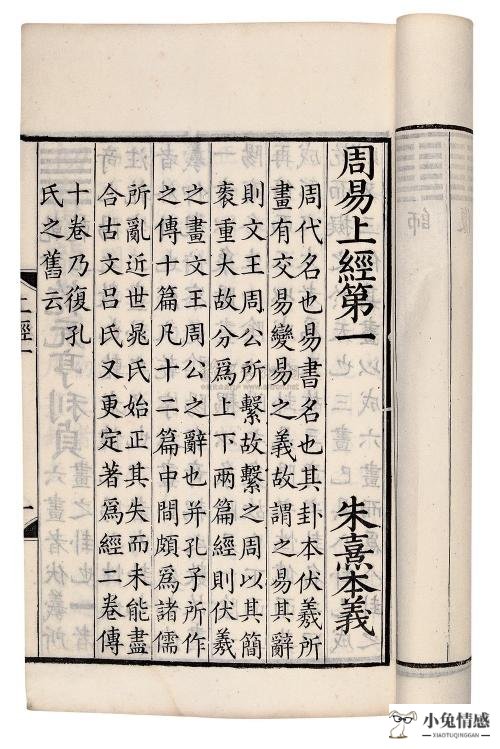 周易上經第一 朱熹本義
周代名也易書名也其卦本伏羲所
畫有交易變易之義故謂之易其辭
則文王周公所繫故繫之周以其簡
袠重大故分爲上下兩篇經則伏羲
之畫文王周公之辭也并孔子所作
之傳十篇凡十二篇中間頗爲諸儒
所亂近世晁氏始正其失而未能盡
合古文呂氏又更定著爲經二卷傳
十卷乃復孔
氏之舊云
師
小兔情感
XIAOTUQINGGAN